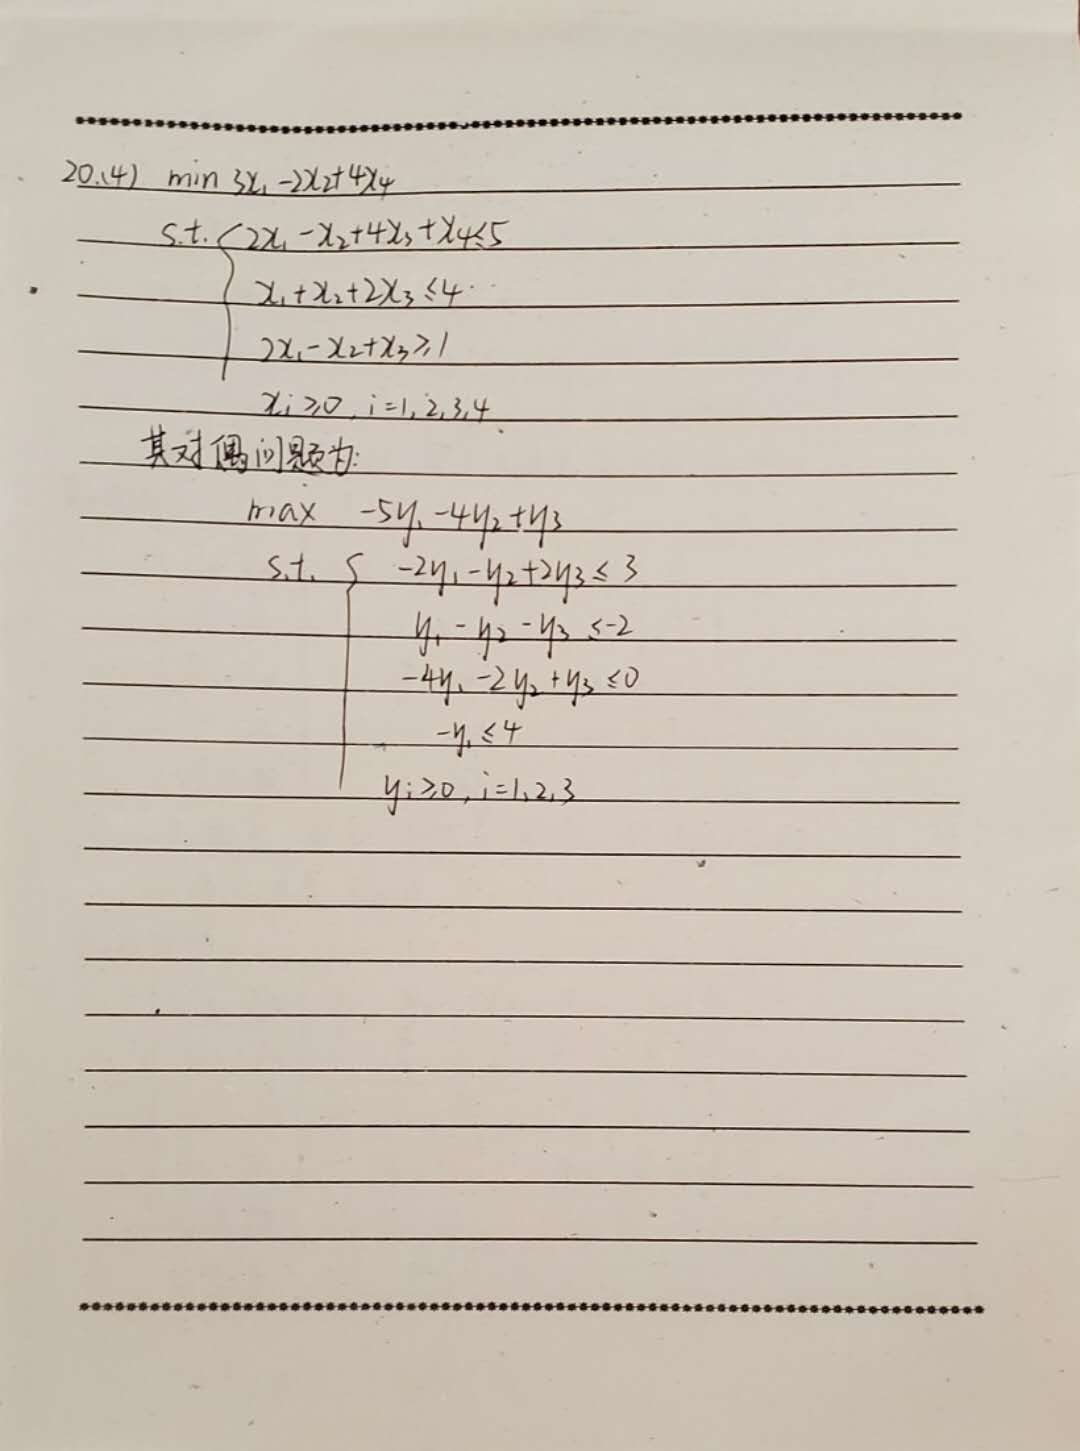 20.(4) min 3x₁-2x₂+4x₄
s.t. { 2x₁-x₂+4x₃+x₄≤5
x₁+x₂+2x₃≤4
2x₁-x₂+x₃≥1
xᵢ≥0, i=1,2,3,4
其对偶问题为:
max -5y₁-4y₂+y₃
s.t. { -2y₁-y₂+2y₃≤3
y₁-y₂-y₃≤-2
-4y₁-2y₂+y₃≤0
-y₁≤4
yᵢ≥0, i=1,2,3